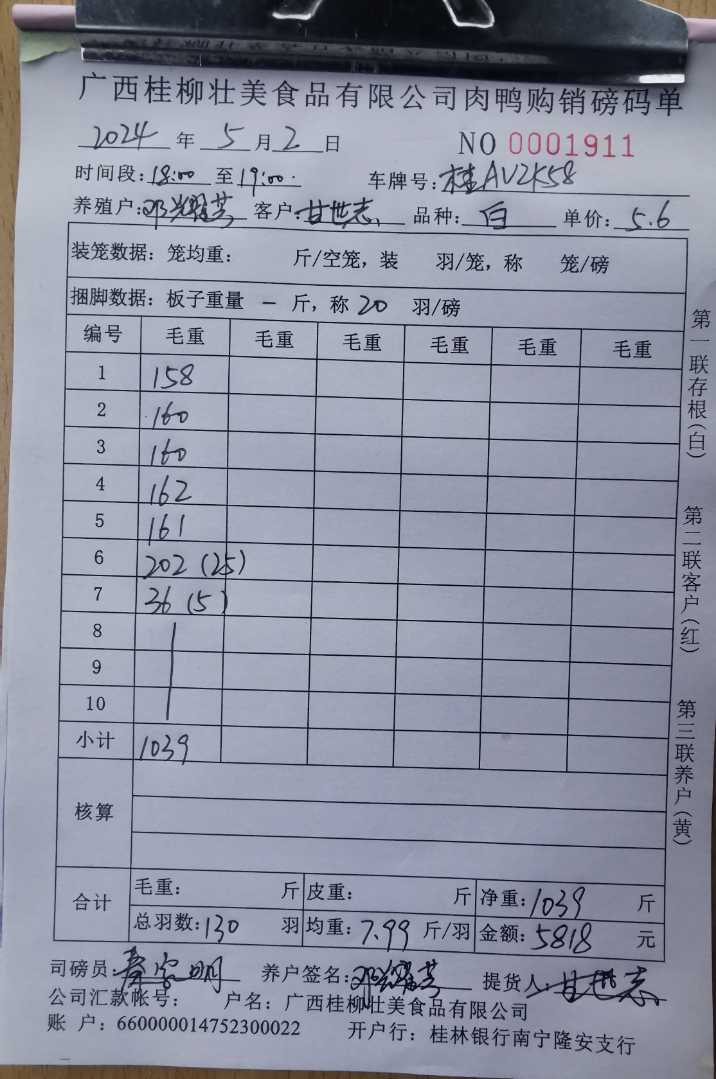 广西桂柳壮美食品有限公司肉鸭购销磅码单
2024 年 5 月 2 日 NO 0001911
时间段: 18:00 至 19:00. 车牌号: 桂AV2K58
养殖户: 客户: 甘世志 品种: 白 单价: 5.6
装笼数据: 笼均重: 斤/空笼, 装 羽/笼, 称 笼/磅
捆脚数据: 板子重量 — 斤, 称 20 羽/磅
编号 毛重 毛重 毛重 毛重 毛重 毛重
1 158
2 160
3 160
4 162
5 161
6 202 (25)
7 36 (5)
8
9
10
小计 1039
核算
合计 毛重: 斤 皮重: 斤 净重: 1039 斤
总羽数: 130 羽 均重: 7.99 斤/羽 金额: 5818 元
司磅员: 养户签名: 提货人 甘世志
公司汇款帐号: 户名: 广西桂柳壮美食品有限公司
账 户: 660000014752300022 开户行: 桂林银行南宁隆安支行
第一联存根(白)
第二联客户(红)
第三联养户(黄)